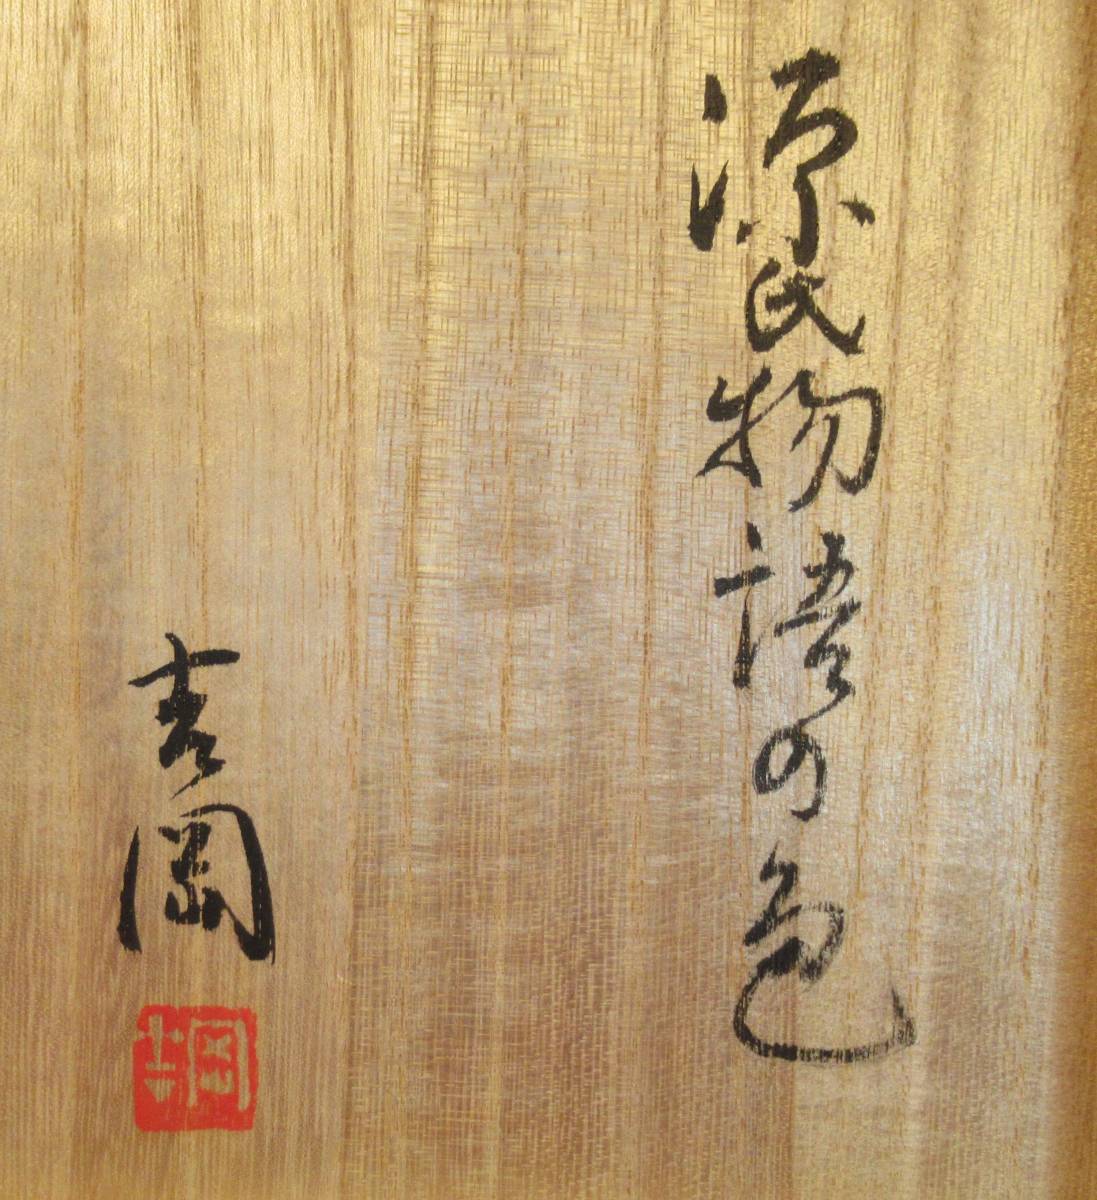 源氏物語の色
吉岡
吉岡